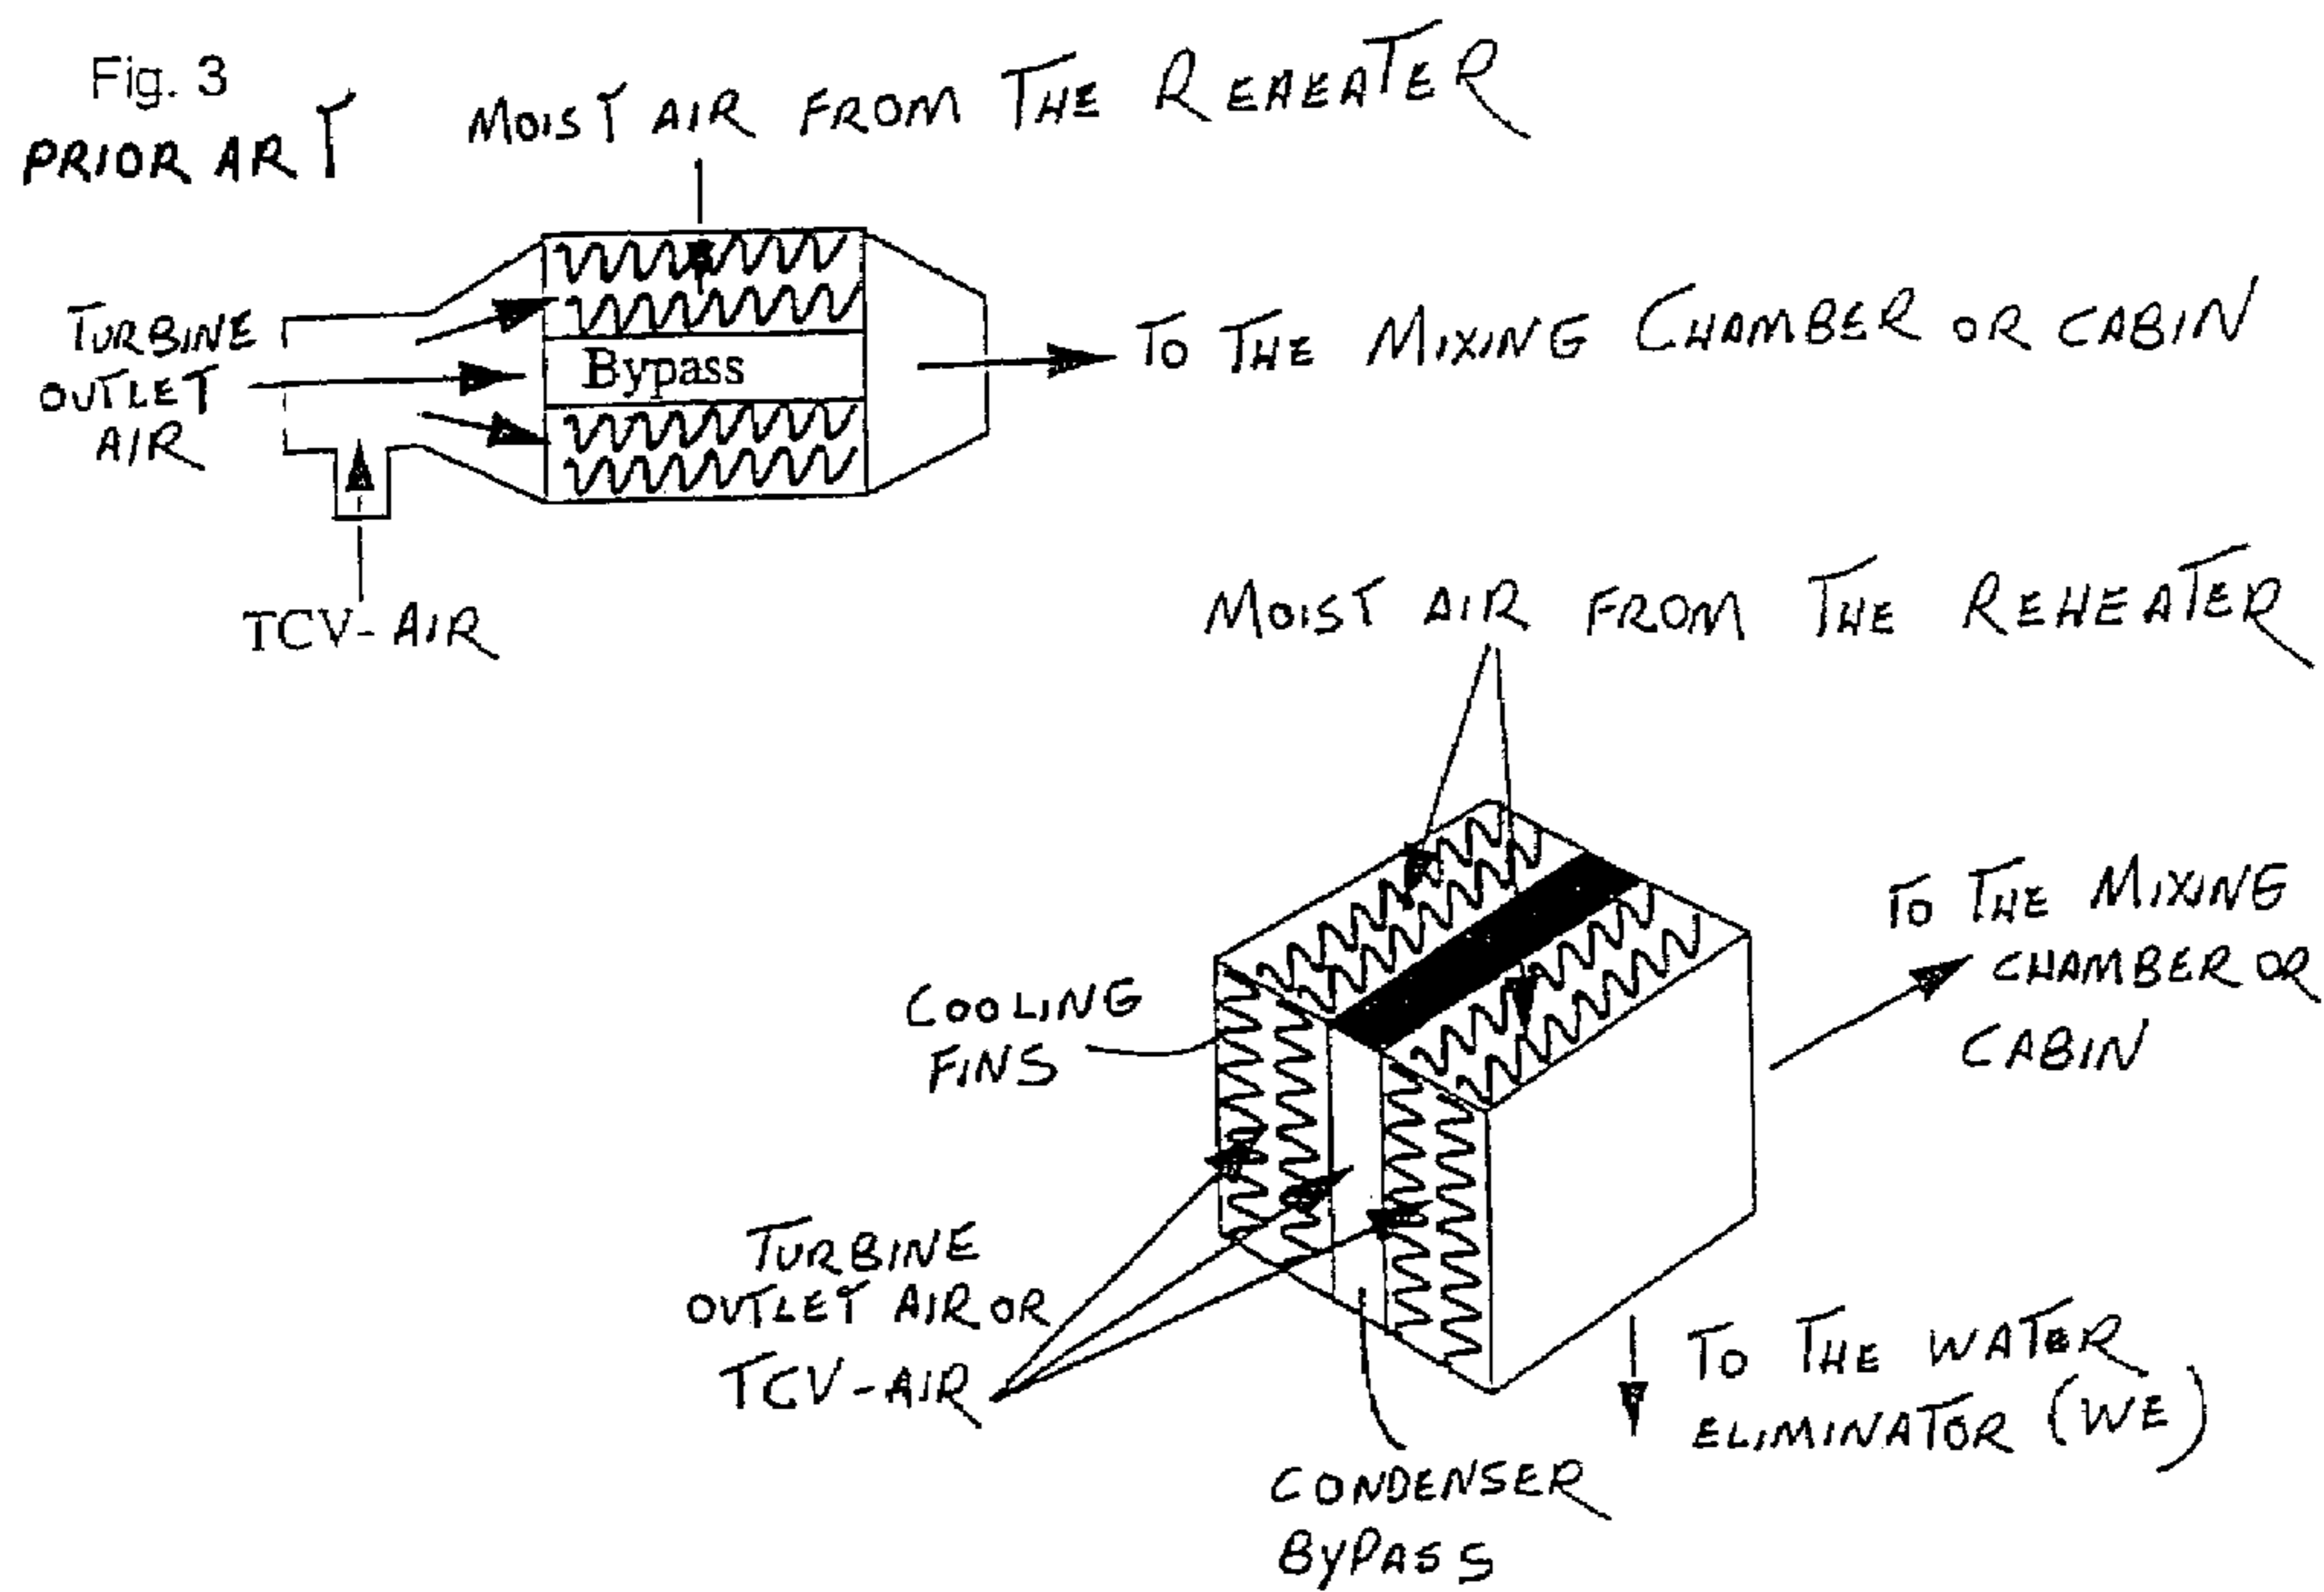 Fig. 3
PRIOR ART
MOIST AIR FROM THE REHEATER
TURBINE
OUTLET
AIR
Bypass
TO THE MIXING CHAMBER OR CABIN
TCV-AIR
MOIST AIR FROM THE REHEATER
COOLING
FINS
TO THE MIXING
CHAMBER OR
CABIN
TURBINE
OUTLET AIR OR
TCV-AIR
TO THE WATER
ELIMINATOR (WE)
CONDENSER
BYPASS